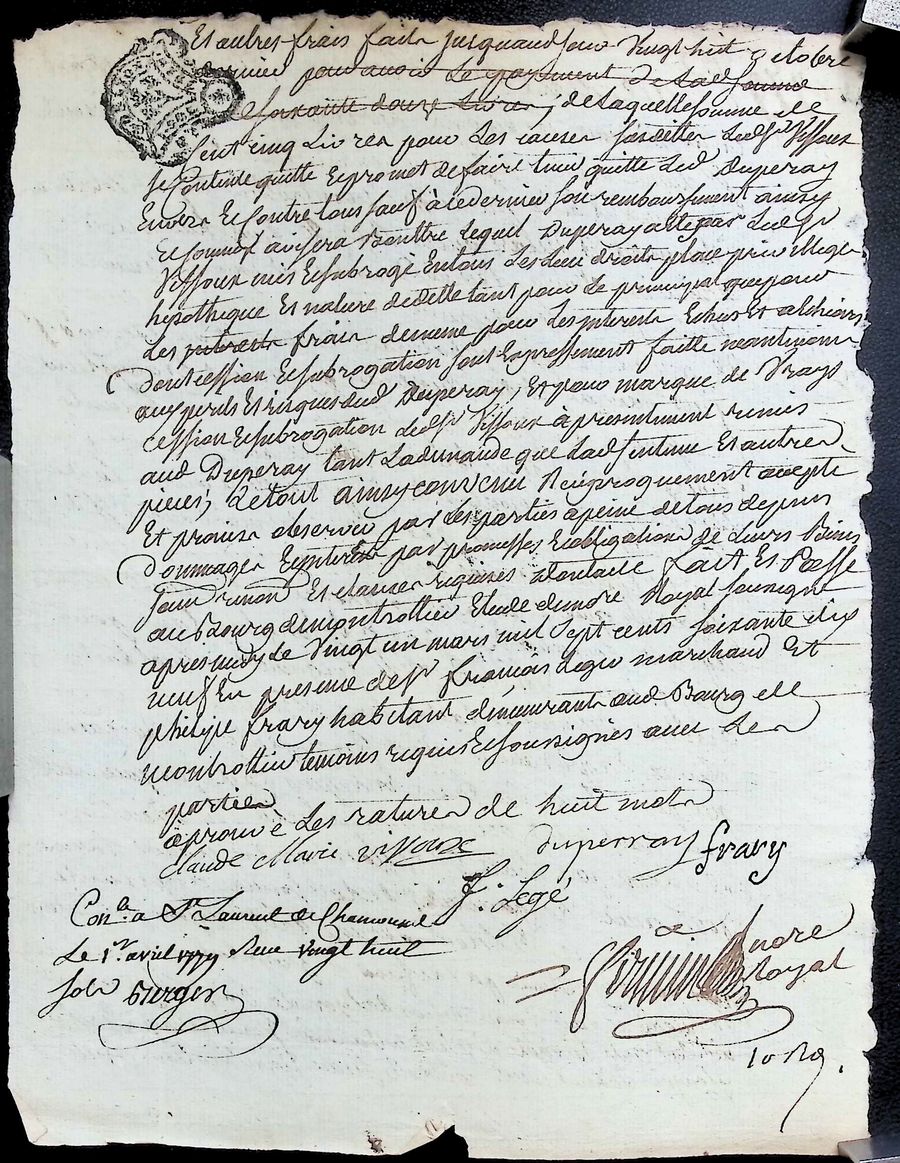 Et autres frais faits jusquaud jour vingt huit octobre
dernier pour avoir le payement de ladt somme
de soixante douze livres, de laquelle somme de
Cent cinq livres pour les causes susdittes ledt sr Vissoux
se Contente quitte et promet de faire tenir quitte led Duperay
Envers et Contre tous sauf à ce dernier son remboursement ainsy
et comme avisera lequel Duperay a été par led sr
Vissoux mis et subrogé en tous ses lieu droits place privilege
hipotheque Et nature de dette tant pour le principal que pour
les interests frais de meme pour les interests Echus et a Echoir
dont cession et subrogation sont Expressement faitte
aux perils et risques dud Duperay, Et pour marque de Vraye
cession et subrogation led sr Vissoux à presentement remis
aud Duperay tant la demande que lad sentence Et autres
pieces, Le tout ainsy convenu Réciproquement accepté
Et promis observer par les parties a peine de tous depens
dommages et interests par promesses et obligations de leurs Biens
soumissions renond Et clauses requises dont acte fait Et Passé
au Bourg de montrottier Etude du nore Royal soussigné
apres midy le Vingt un mars mil Sept cents soixante dix
neuf En presence de sr françois Legé marchand Et
philipe frary habitant demeurants aud Bourg de
montrottier temoins requis et soussignés avec les
parties
aprouvé les ratures de huit mots
Claude Marie vissoux duperray frary
f. Legé
Conlé a St Laurent de Chamousset
Le 1er avril 1779 Reçu vingt huit
sols
nore
Royal